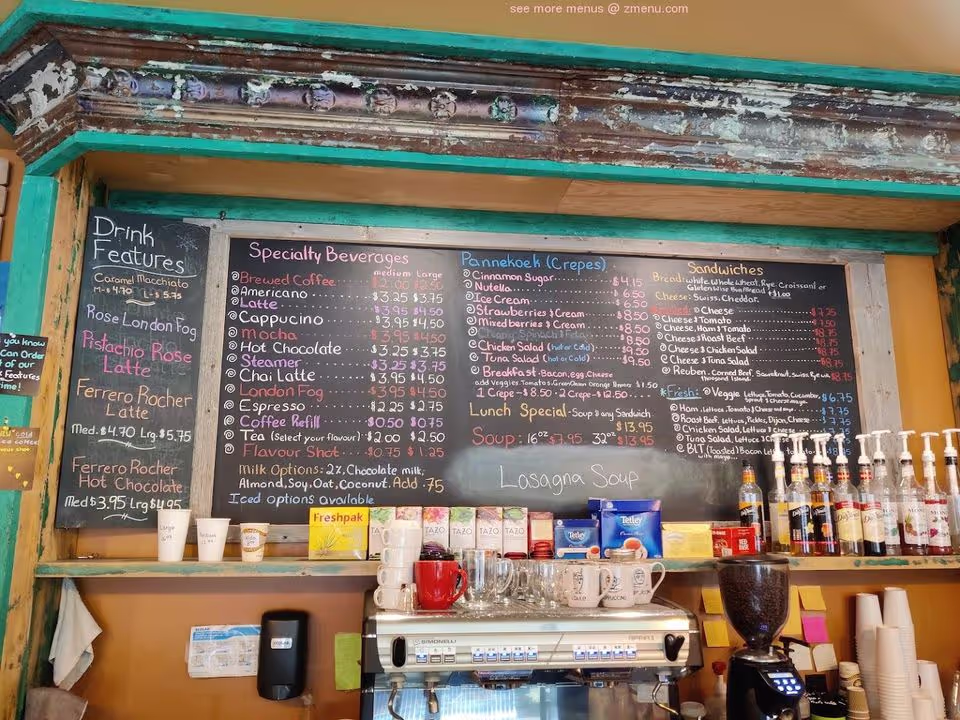 see more menus @ zmenu.com
Drink
Features
Caramel Macchiato
M-$4.70 L-$5.75
Rose London Fog
Pistachio Rose
Latte
Ferrero Rocher
Latte
Med.$4.70 Lrg.$5.75
Ferrero Rocher
Hot Chocolate
Med $3.95 Lrg $4.95
Specialty Beverages
medium Large
Brewed Coffee $2.00 $2.50
Americano $3.25 $3.75
Latte $3.95 $4.50
Cappucino $3.95 $4.50
Mocha $3.95 $4.50
Hot Chocolate $3.25 $3.75
Steamer $3.25 $3.75
Chai Latte $3.95 $4.50
London Fog $3.95 $4.50
Espresso $2.25 $2.75
Coffee Refill $0.50 $0.75
Tea (Select your flavour) $2.00 $2.50
Flavour Shot $0.75 $1.25
Milk Options: 2%, Chocolate milk,
Almond, Soy, Oat, Coconut. Add .75
Iced options available
Pannekoek (Crepes)
Cinnamon Sugar $4.15
Nutella $6.50
Ice Cream $6.50
Strawberries & Cream $8.50
Mixed berries & Cream $8.50
Chicken Salad (hot or Cold) $9.50
Tuna Salad (hot or Cold) $9.50
Breakfast-Bacon, egg, Cheese
add Veggies: Tomatoes, Green Onion, Orange Peppers $1.50
1 Crepe-$8.50 2 Crepe-$12.50
Lunch Special-Soup & any Sandwich
$13.95
Soup: 16oz $7.95 32oz $13.95
Lasagna Soup
Sandwiches
Bread: White, Whole Wheat, Rye, Croissant or
Gluten Wise Bun Bread +$1.00
Cheese: Swiss, Cheddar.
Cheese $7.25
Cheese & Tomato $7.50
Cheese, Ham & Tomato $8.75
Cheese & Roast Beef $8.75
Cheese & Chicken Salad $8.75
Cheese & Tuna Salad $8.75
Reuben: Corned Beef, Sauerkraut, Swiss, Rye with $8.75
thousand Island
Fresh: Veggie Lettuce, Tomato, Cucumber, $6.75
Ham: Lettuce, Tomato, Cheese $7.75
Roast Beef: Lettuce, Pickles, Dijon, Cheese $7.75
Chicken Salad, Lettuce & Cheese
Tuna Salad, Lettuce
BLT (Toasted) Bacon
with mayo
you know
Can Order
of our
Features
time!
Freshpak
TAZO
TAZO
TAZO
TAZO
Tetley
Tetley
Large
SIMONELLI